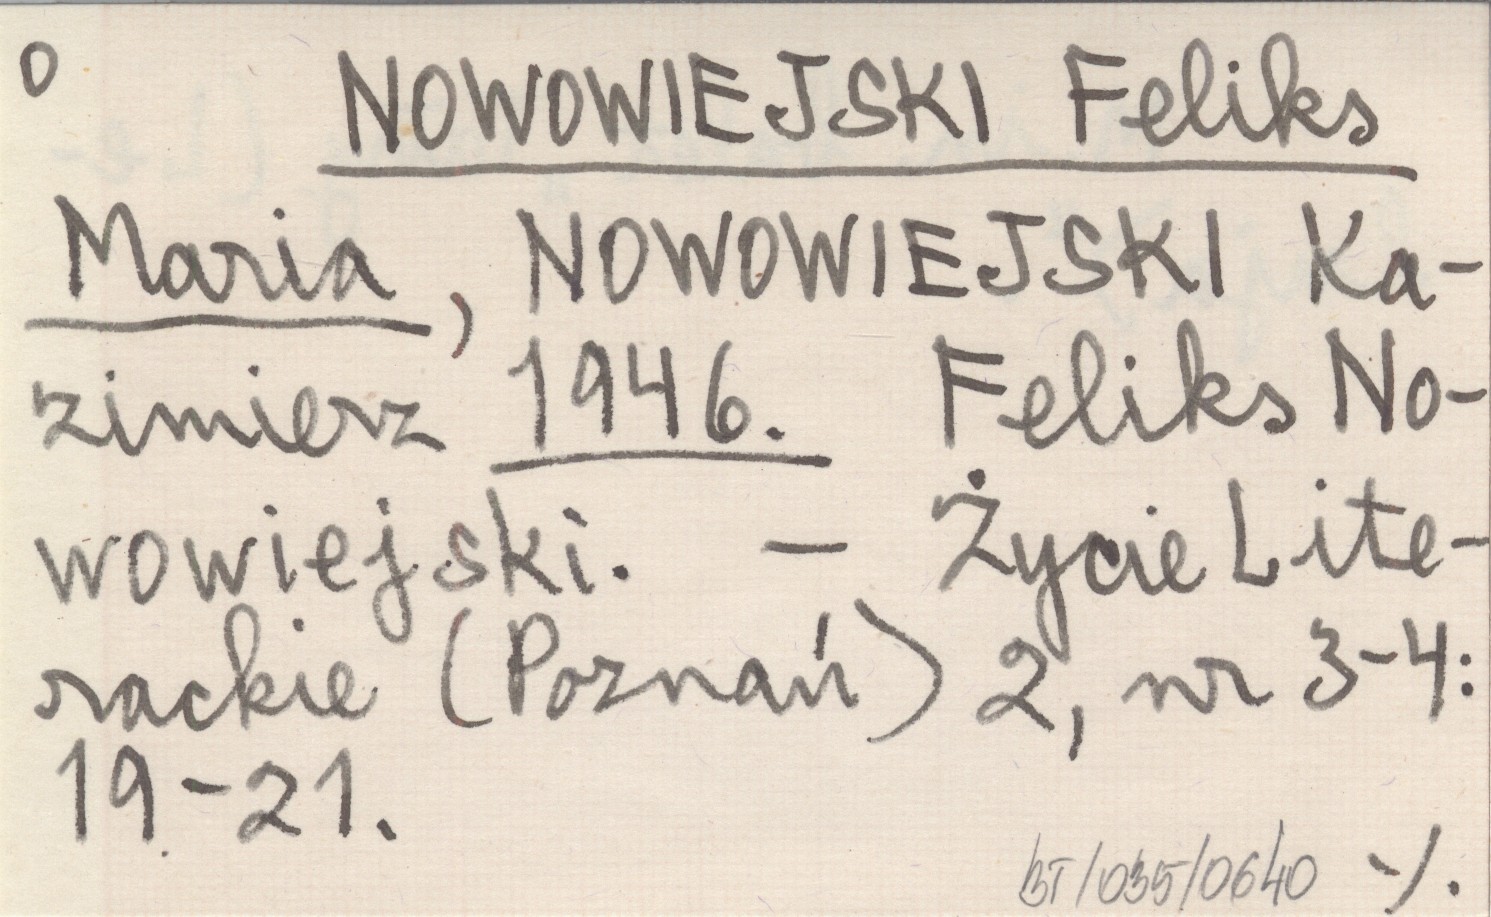 O
NOWOWIEJSKI Feliks
Maria, NOWOWIEJSKI Ka-
zimierz 1946. Feliks No-
wowiejski. - Życie Lite-
rackie (Poznań) 2, nr 3-4:
19-21.
BT/035/0640 -/.